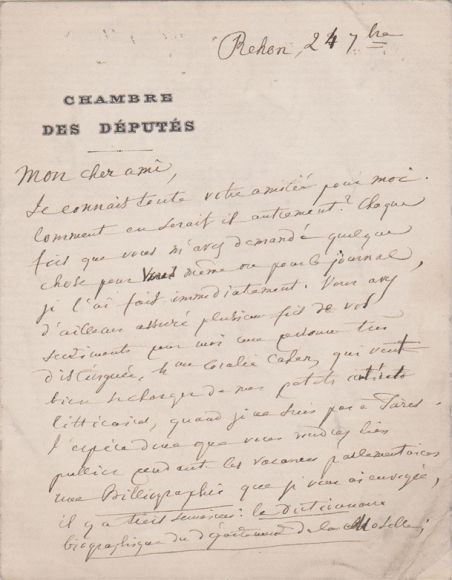 Rehon, 24 7bre
CHAMBRE
DES DÉPUTÉS
Mon cher ami,
Je connais toute votre amitié pour moi.
Comment en serait il autrement? Chaque
fois que vous m'avez demandé quelque
chose pour vous même ou pour le journal,
je l'ai fait immédiatement. Vous avez,
d'ailleurs assuré plusieurs fois de vos
sentiments pour moi une personne très
distinguée, Mme Coralie Cahen, qui veut
bien se charger de mes petits intérêts
littéraires, quand je ne suis pas à Paris.
J'espère donc que vous voudrez bien
publier pendant les vacances parlementaires
une Bibliographie que je vous ai envoyée,
il y a trois semaines: le dictionnaire
biographique du département de la Moselle;